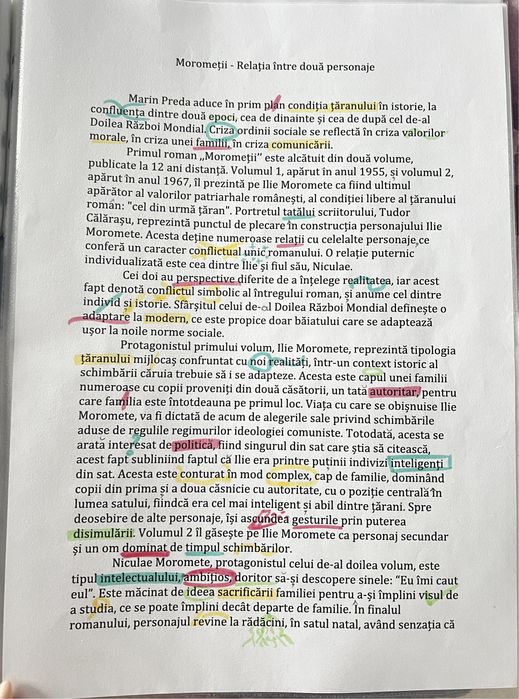 Moromeții - Relația între două personaje
Marin Preda aduce în prim plan condiția țăranului în istorie, la
confluența dintre două epoci, cea de dinainte și cea de după cel de-al
Doilea Război Mondial. Criza ordinii sociale se reflectă în criza valorilor
morale, în criza unei familii, în criza comunicării.
Primul roman „Moromeții" este alcătuit din două volume,
publicate la 12 ani distanță. Volumul 1, apărut în anul 1955, și volumul 2,
apărut în anul 1967, îl prezintă pe Ilie Moromete ca fiind ultimul
apărător al valorilor patriarhale românești, al condiției libere al țăranului
român: "cel din urmă țăran". Portretul tatălui scriitorului, Tudor
Călărașu, reprezintă punctul de plecare în construcția personajului Ilie
Moromete. Acesta deține numeroase relații cu celelalte personaje,ce
conferă un caracter conflictual unic romanului. O relație puternic
individualizată este cea dintre Ilie și fiul său, Niculae.
Cei doi au perspective diferite de a înțelege realitatea, iar acest
fapt denotă conflictul simbolic al întregului roman, și anume cel dintre
individ și istorie. Sfârșitul celui de-al Doilea Război Mondial definește o
adaptare la modern, ce este propice doar băiatului care se adaptează
ușor la noile norme sociale.
Protagonistul primului volum, Ilie Moromete, reprezintă tipologia
țăranului mijlocaș confruntat cu noi realități, într-un context istoric al
schimbării căruia trebuie să i se adapteze. Acesta este capul unei familii
numeroase cu copii proveniți din două căsătorii, un tată autoritar, pentru
care familia este întotdeauna pe primul loc. Viața cu care se obișnuise Ilie
Moromete, va fi dictată de acum de alegerile sale privind schimbările
aduse de regulile regimurilor ideologiei comuniste. Totodată, acesta se
arată interesat de politică, fiind singurul din sat care știa să citească,
acest fapt subliniind faptul că Ilie era printre puținii indivizi inteligenți
din sat. Acesta este conturat în mod complex, cap de familie, dominând
copii din prima și a doua căsnicie cu autoritate, cu o poziție centrală în
lumea satului, fiindcă era cel mai inteligent și abil dintre țărani. Spre
deosebire de alte personaje, își ascundea gesturile prin puterea
disimulării. Volumul 2 îl găsește pe Ilie Moromete ca personaj secundar
și un om dominat de timpul schimbărilor.
Niculae Moromete, protagonistul celui de-al doilea volum, este
tipul intelectualului, ambițios, doritor să-și descopere sinele: “Eu îmi caut
eul”. Este măcinat de ideea sacrificării familiei pentru a-și împlini visul de
a studia, ce se poate împlini decât departe de familie. În finalul
romanului, personajul revine la rădăcini, în satul natal, având senzația că